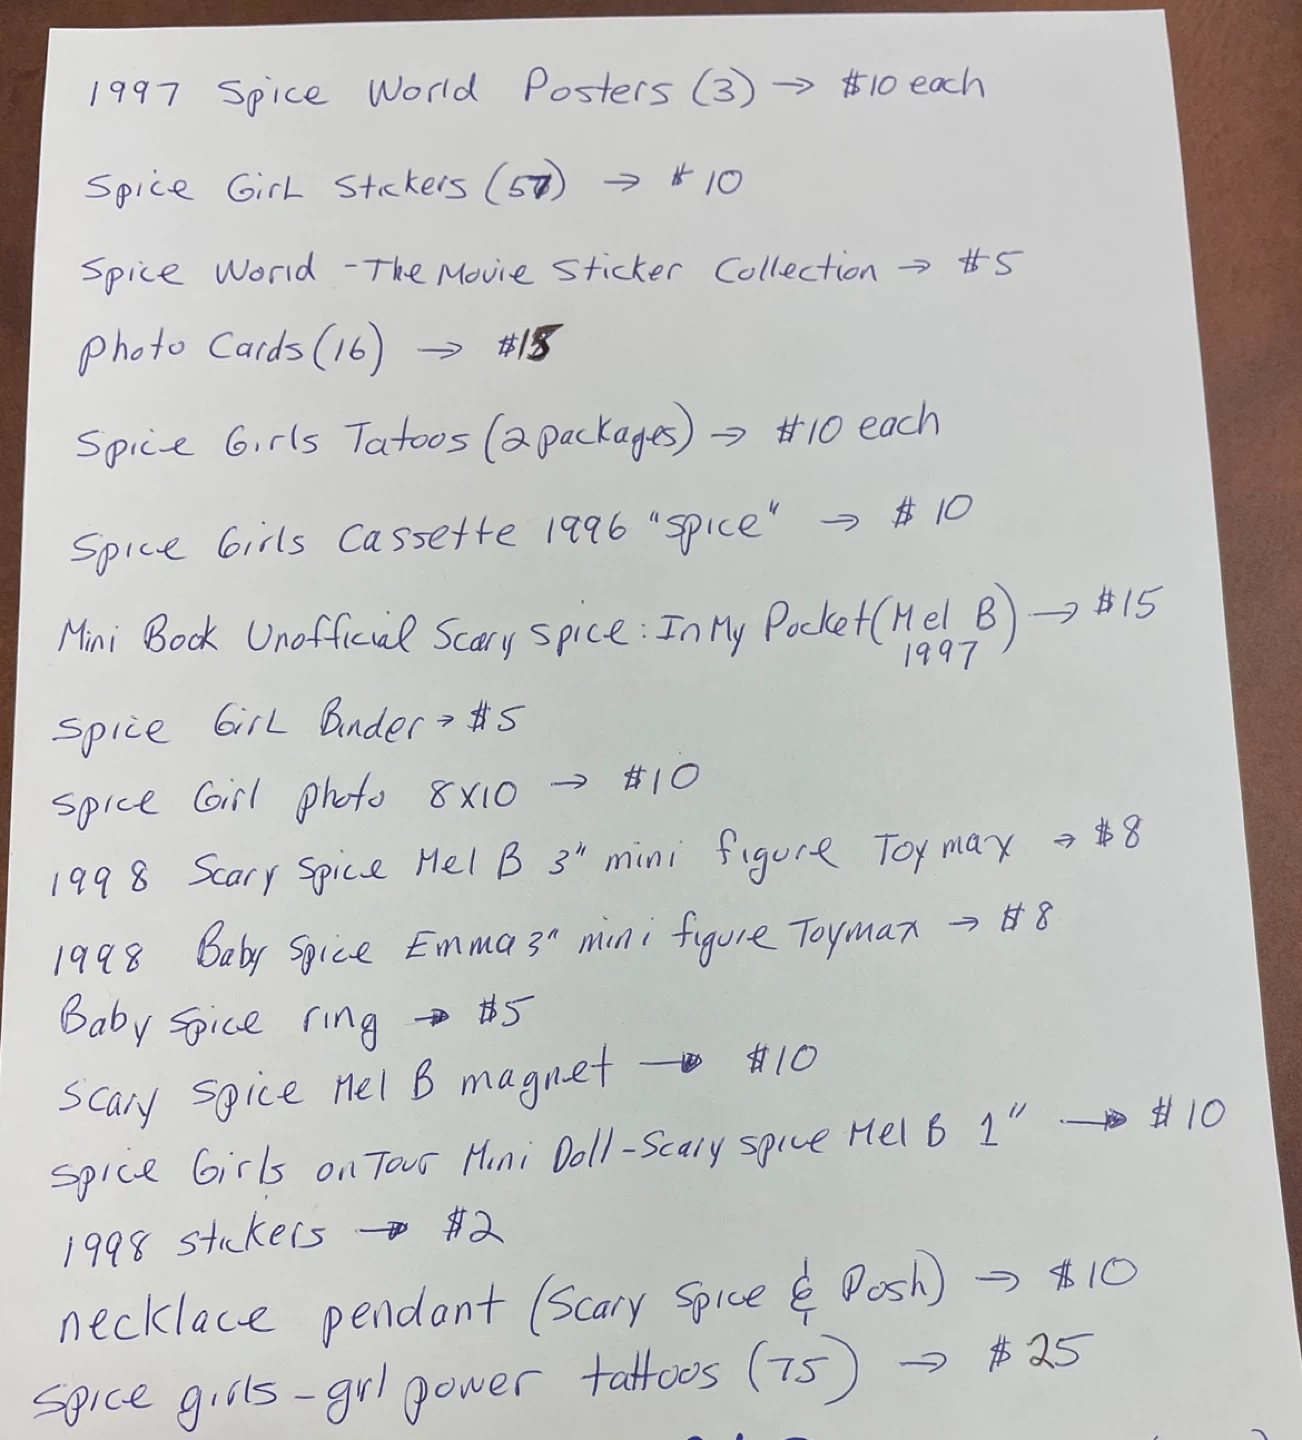 1997 Spice World Posters (3) → $10 each
Spice Girl Stickers (57) → $10
Spice World - The Movie Sticker Collection → $5
Photo Cards (16) → $15
Spice Girls Tatoos (2 packages) → $10 each
Spice Girls Cassette 1996 "Spice" → $10
Mini Book Unofficial Scary Spice: In My Pocket (Mel B) → $15
1997
Spice Girl Binder → $5
Spice Girl photo 8x10 → $10
1998 Scary Spice Mel B 3" mini figure Toymax → $8
1998 Baby Spice Emma 3" mini figure Toymax → $8
Baby Spice ring → $5
Scary Spice Mel B magnet → $10
Spice Girls on Tour Mini Doll - Scary Spice Mel B 1" → $10
1998 stickers → $2
necklace pendant (Scary Spice & Posh) → $10
Spice girls - girl power tattoos (75) → $25